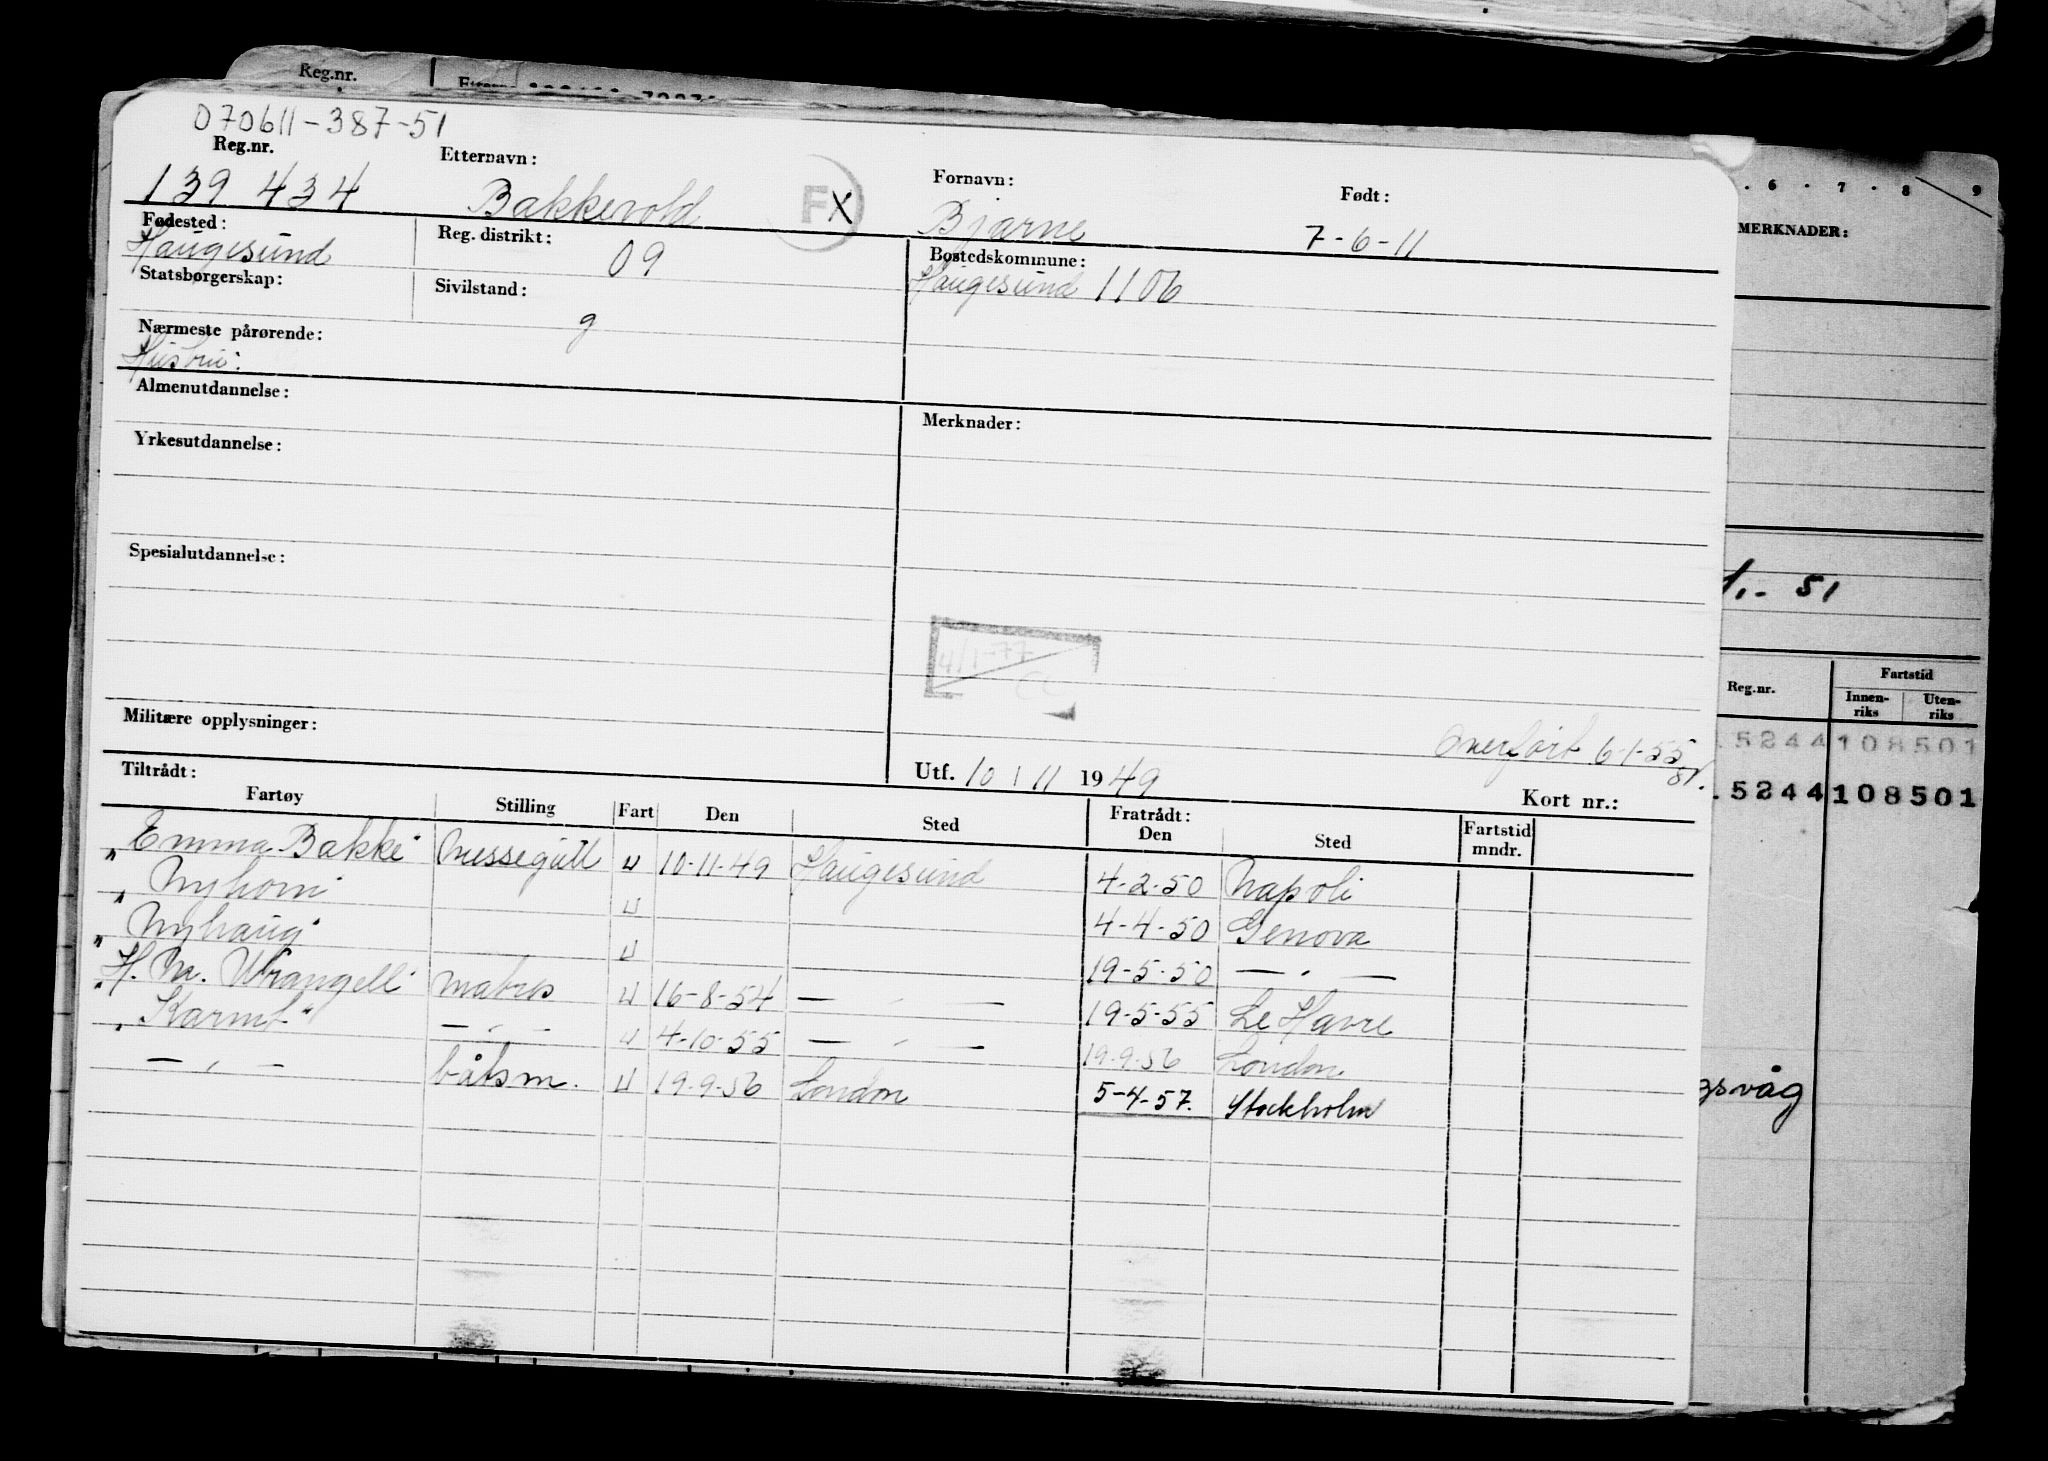 Reg.nr.
6 · 7 · 8 9
MERKNADER:
070611-387-51
Reg.nr. Etternavn: Fornavn: Født:
139 434 Bakkevold FX Bjarne 7-6-11
Fødested: Reg. distrikt: Bostedskommune:
Haugesund 09 Haugesund 1106
Statsborgerskap: Sivilstand:
g
Nærmeste pårørende:
Hustru:
Almenutdannelse: Merknader:
Yrkesutdannelse:
Spesialutdannelse:
4/1-77
Militære opplysninger:
Overført 6-1-55
Utf. 10 / 11 1949
Tiltrådt: Kort nr.:
Fartøy Stilling Fart Den Sted Fratrådt: Den Sted Fartstid mndr.
"Emma Bakke" Messegutt U 10-11-49 Haugesund 4-2-50 Napoli
"Nyhorn" U 4-4-50 Genova
"Nyhaug" U 19-5-50 — " —
"H. M. Wrangell" matros U 16-8-54 — " — 19-5-55 Le Havre
"Karmt" — " — U 4-10-55 — " — 19-9-56 London
— " — båtsm. U 19-9-56 London 5-4-57. Stockholm
51
Reg.nr. Fartstid
Innen-riks Uten-riks
5244 108501
.5244 108501
gsvåg